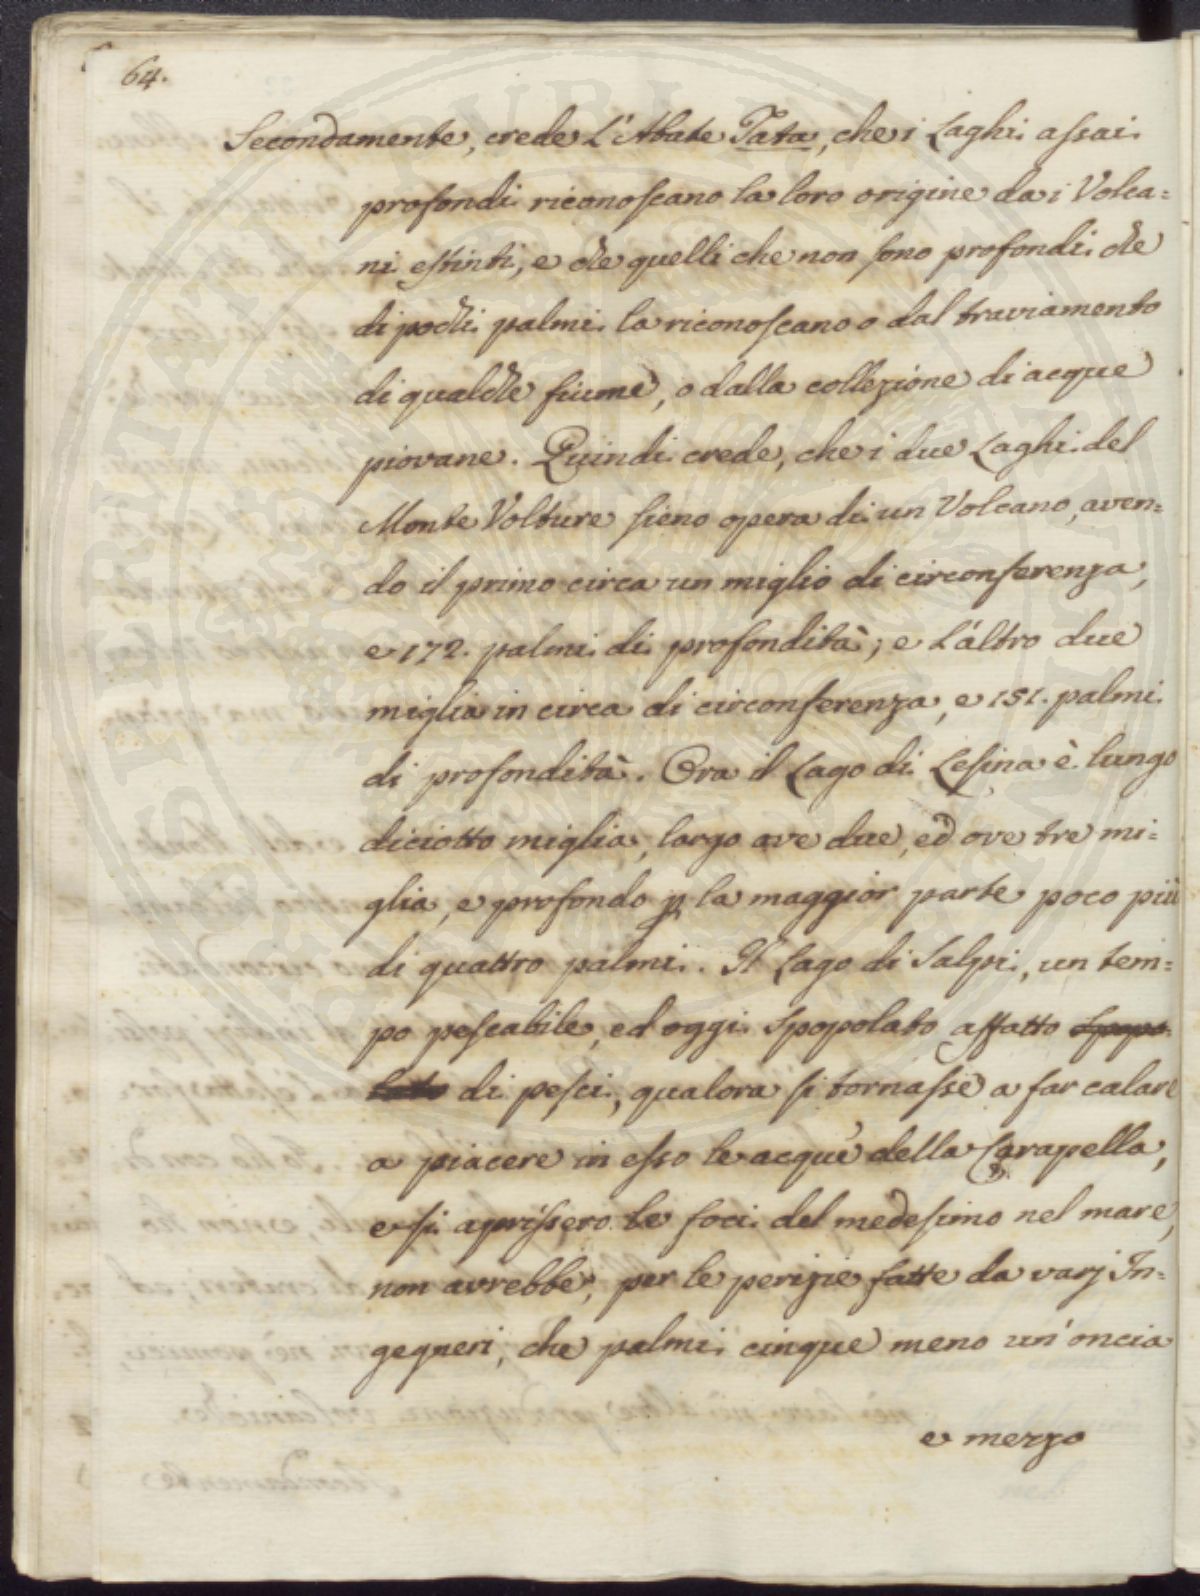 64.
Secondamente, crede L'Abate Tata, che i Laghi assai
profondi riconoscano la loro origine da i Volca=
ni estinti, e che quelli che non sono profondi che
di pochi palmi la riconoscano o dal traviamento
di qualche fiume, o dalla collezione di acque
piovane. Quindi crede, che i due Laghi del
Monte Volture sieno opera di un Volcano, aven=
do il primo circa un miglio di circonferenza,
e 172. palmi di profondità; e L'altro due
miglia in circa di circonferenza, e 151. palmi
di profondità. Ora il Lago di Lesina è lungo
diciotto miglia, largo ove due, ed ove tre mi=
glia, e profondo p la maggior parte poco più
di quattro palmi. Il Lago di Salpi, un tem=
po pescabile, ed oggi spopolato affatto spopo=
lato di pesci, qualora si tornasse a far calare
a piacere in esso le acque della Carapella,
e si aprissero le foci del medesimo nel mare,
non avrebbe, per le perizie fatte da varj In=
gegneri, che palmi cinque meno un'oncia
e mezzo
VERITATI PUBLICAE